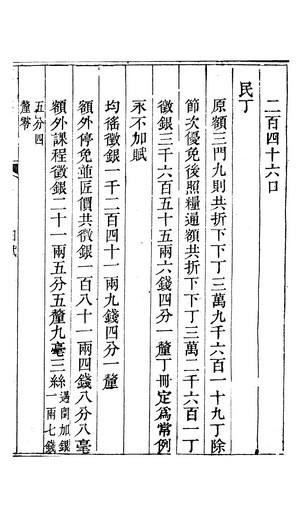 二百四十六口
民丁
原額三門九則共折下下丁三萬九千六百一十九丁除
節次優免後照糧逓額共折下下丁三萬二千六百一丁
徵銀三千六百五十五兩六錢四分一釐丁冊定為常例
永不加賦
均徭徵銀一千二百四十一兩九錢四分一釐
額外停免並匠價共徵銀一百八十一兩四錢八分八毫
額外課程徵銀二十一兩五分五釐九毫三絲遇閏加銀一兩七錢
五分四釐零